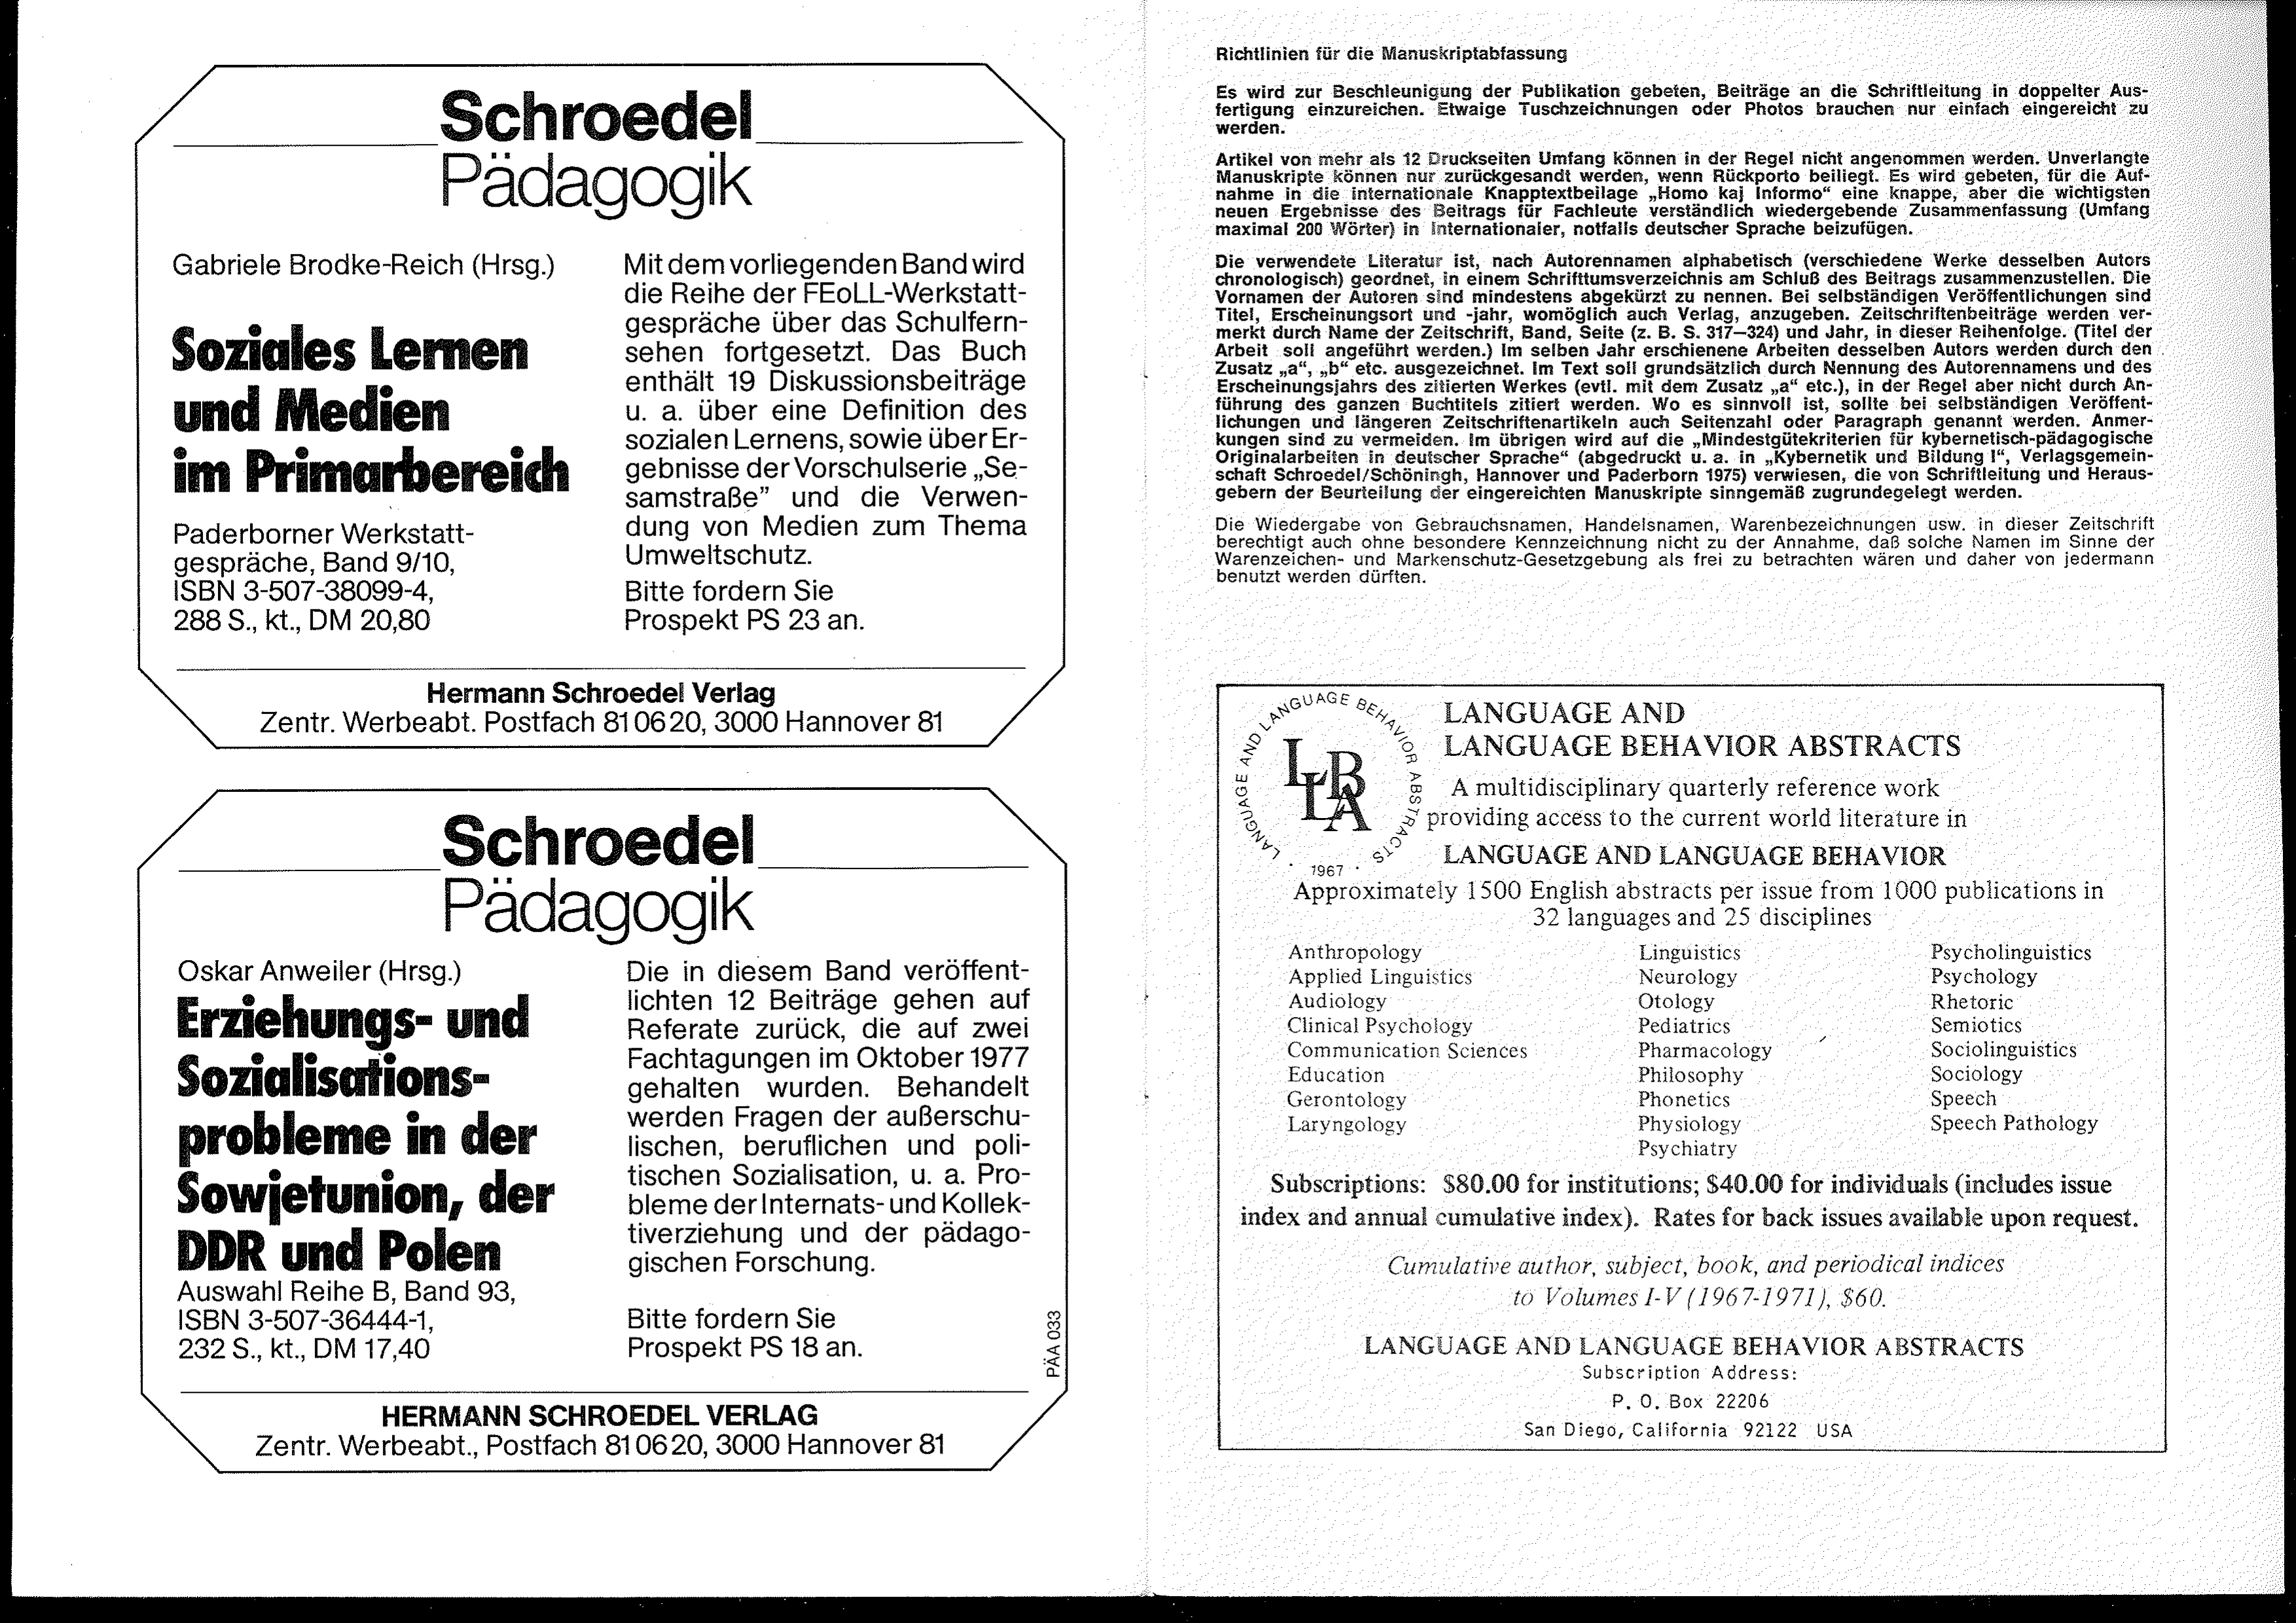 Schroedel
Pädagogik
Gabriele Brodke-Reich (Hrsg.)
Soziales Lernen
und Medien
im Primarbereich
Paderborner Werkstatt-
gespräche, Band 9/10,
ISBN 3-507-38099-4,
288 S., kt., DM 20,80
Mit dem vorliegenden Band wird
die Reihe der FEoLL-Werkstatt-
gespräche über das Schulfern-
sehen fortgesetzt. Das Buch
enthält 19 Diskussionsbeiträge
u. a. über eine Definition des
sozialen Lernens, sowie über Er-
gebnisse der Vorschulserie „Se-
samstraße” und die Verwen-
dung von Medien zum Thema
Umweltschutz.
Bitte fordern Sie
Prospekt PS 23 an.
Hermann Schroedel Verlag
Zentr. Werbeabt. Postfach 81 06 20, 3000 Hannover 81
Schroedel
Pädagogik
Oskar Anweiler (Hrsg.)
Erziehungs- und
Sozialisations-
probleme in der
Sowjetunion, der
DDR und Polen
Auswahl Reihe B, Band 93,
ISBN 3-507-36444-1,
232 S., kt., DM 17,40
Die in diesem Band veröffent-
lichten 12 Beiträge gehen auf
Referate zurück, die auf zwei
Fachtagungen im Oktober 1977
gehalten wurden. Behandelt
werden Fragen der außerschu-
lischen, beruflichen und poli-
tischen Sozialisation, u. a. Pro-
bleme der Internats- und Kollek-
tiverziehung und der pädago-
gischen Forschung.
Bitte fordern Sie
Prospekt PS 18 an.
PÄA 033
HERMANN SCHROEDEL VERLAG
Zentr. Werbeabt., Postfach 81 06 20, 3000 Hannover 81
Richtlinien für die Manuskriptabfassung
Es wird zur Beschleunigung der Publikation gebeten, Beiträge an die Schriftleitung in doppelter Aus-
fertigung einzureichen. Etwaige Tuschzeichnungen oder Photos brauchen nur einfach eingereicht zu
werden.
Artikel von mehr als 12 Druckseiten Umfang können in der Regel nicht angenommen werden. Unverlangte
Manuskripte können nur zurückgesandt werden, wenn Rückporto beiliegt. Es wird gebeten, für die Auf-
nahme in die internationale Knapptextbeilage „Homo kaj Informo“ eine knappe, aber die wichtigsten
neuen Ergebnisse des Beitrags für Fachleute verständlich wiedergebende Zusammenfassung (Umfang
maximal 200 Wörter) in internationaler, notfalls deutscher Sprache beizufügen.
Die verwendete Literatur ist, nach Autorennamen alphabetisch (verschiedene Werke desselben Autors
chronologisch) geordnet, in einem Schrifttumsverzeichnis am Schluß des Beitrags zusammenzustellen. Die
Vornamen der Autoren sind mindestens abgekürzt zu nennen. Bei selbständigen Veröffentlichungen sind
Titel, Erscheinungsort und -jahr, womöglich auch Verlag, anzugeben. Zeitschriftenbeiträge werden ver-
merkt durch Name der Zeitschrift, Band, Seite (z. B. S. 317—324) und Jahr, in dieser Reihenfolge. (Titel der
Arbeit soll angeführt werden.) Im selben Jahr erschienene Arbeiten desselben Autors werden durch den
Zusatz „a“, „b“ etc. ausgezeichnet. Im Text soll grundsätzlich durch Nennung des Autorennamens und des
Erscheinungsjahrs des zitierten Werkes (evtl. mit dem Zusatz „a“ etc.), in der Regel aber nicht durch An-
führung des ganzen Buchtitels zitiert werden. Wo es sinnvoll ist, sollte bei selbständigen Veröffent-
lichungen und längeren Zeitschriftenartikeln auch Seitenzahl oder Paragraph genannt werden. Anmer-
kungen sind zu vermeiden. Im übrigen wird auf die „Mindestgütekriterien für kybernetisch-pädagogische
Originalarbeiten in deutscher Sprache“ (abgedruckt u. a. in „Kybernetik und Bildung I“, Verlagsgemein-
schaft Schroedel/Schöningh, Hannover und Paderborn 1975) verwiesen, die von Schriftleitung und Heraus-
gebern der Beurteilung der eingereichten Manuskripte sinngemäß zugrundegelegt werden.
Die Wiedergabe von Gebrauchsnamen, Handelsnamen, Warenbezeichnungen usw. in dieser Zeitschrift
berechtigt auch ohne besondere Kennzeichnung nicht zu der Annahme, daß solche Namen im Sinne der
Warenzeichen- und Markenschutz-Gesetzgebung als frei zu betrachten wären und daher von jedermann
benutzt werden dürften.
LANGUAGE AND LANGUAGE BEHAVIOR ABSTRACTS
LLBA
1967
LANGUAGE AND
LANGUAGE BEHAVIOR ABSTRACTS
A multidisciplinary quarterly reference work
providing access to the current world literature in
LANGUAGE AND LANGUAGE BEHAVIOR
Approximately 1500 English abstracts per issue from 1000 publications in
32 languages and 25 disciplines
Anthropology
Applied Linguistics
Audiology
Clinical Psychology
Communication Sciences
Education
Gerontology
Laryngology
Linguistics
Neurology
Otology
Pediatrics
Pharmacology
Philosophy
Phonetics
Physiology
Psychiatry
Psycholinguistics
Psychology
Rhetoric
Semiotics
Sociolinguistics
Sociology
Speech
Speech Pathology
Subscriptions: $80.00 for institutions; $40.00 for individuals (includes issue
index and annual cumulative index). Rates for back issues available upon request.
Cumulative author, subject, book, and periodical indices
to Volumes I-V (1967-1971), $60.
LANGUAGE AND LANGUAGE BEHAVIOR ABSTRACTS
Subscription Address:
P. O. Box 22206
San Diego, California 92122 USA